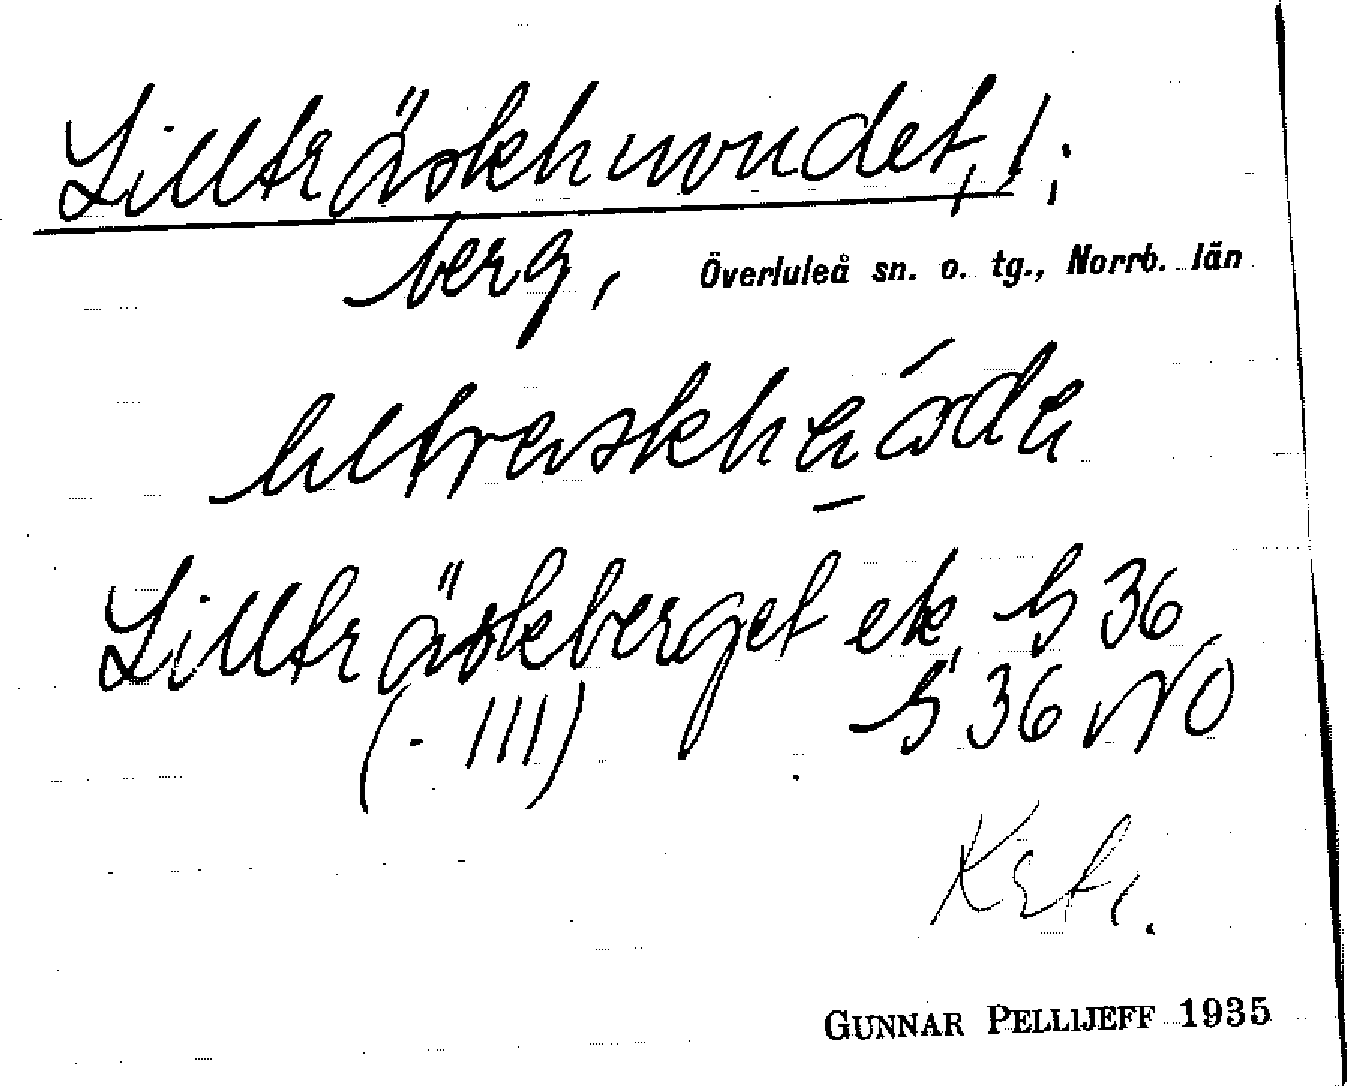 Lillträskhuvudet, 1;
berg, Överluleå sn. o. tg., Norrb. län
Lillträskberget ek. h 36
(- III) h 36 NO
GUNNAR PELLIJEFF 1935